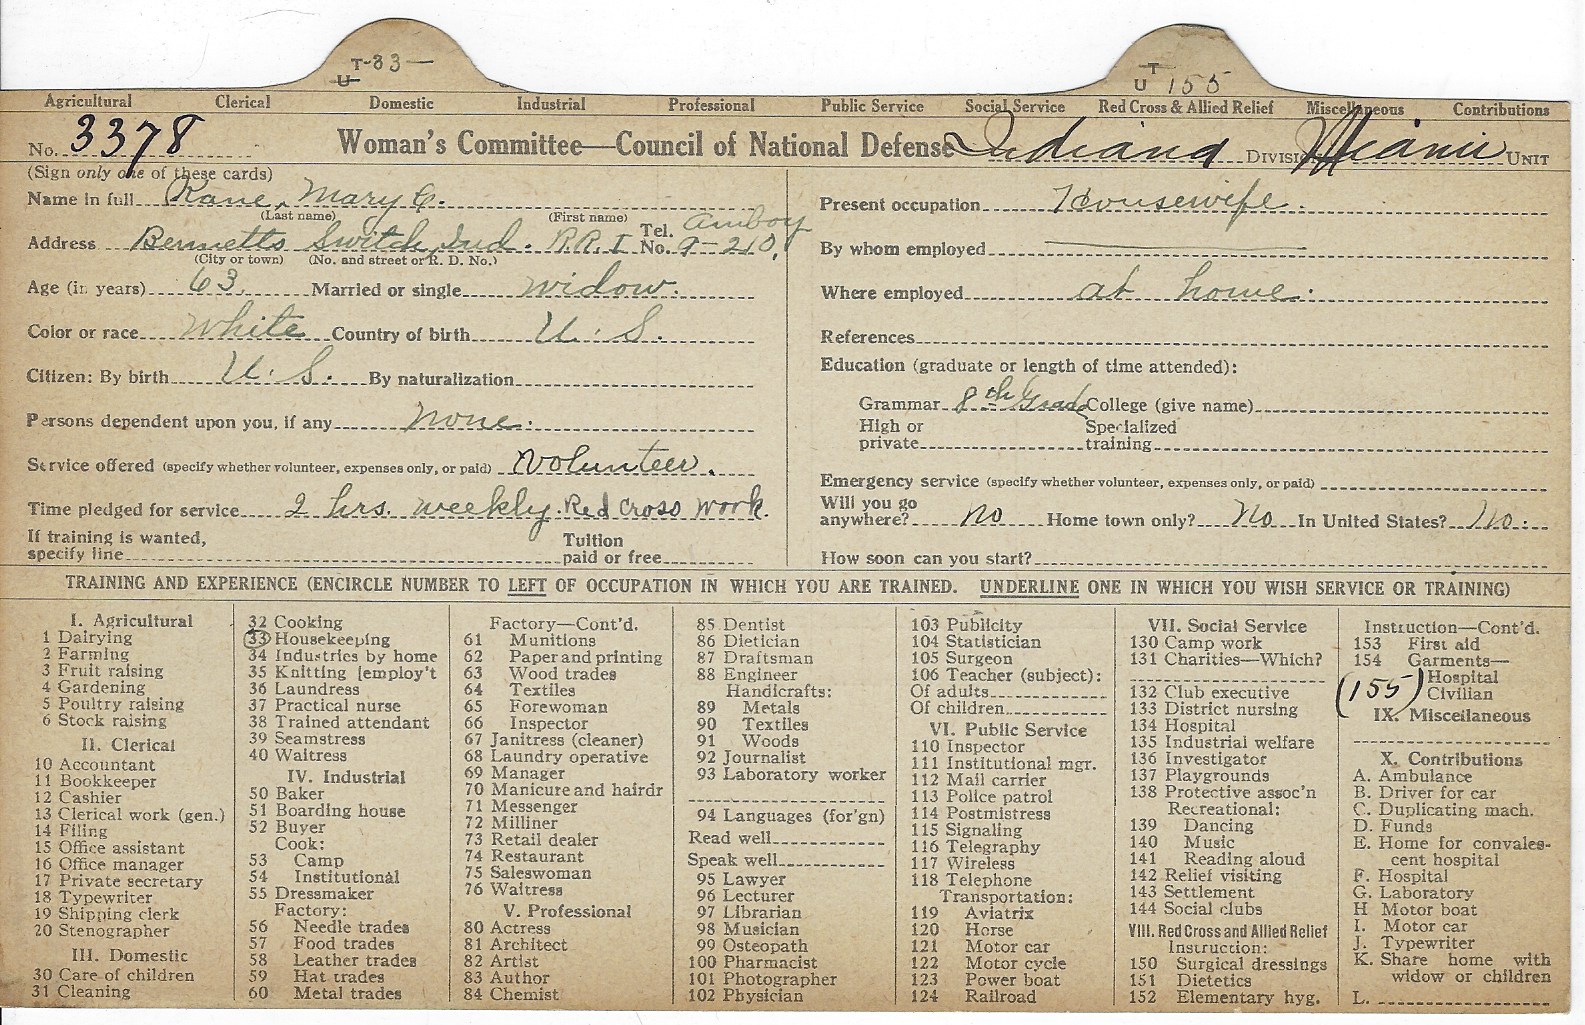 T-33—
U
T
U 155
Agricultural Clerical Domestic Industrial Professional Public Service Social Service Red Cross & Allied Relief Miscellaneous Contributions
No. 3378 Woman's Committee—Council of National Defense Indiana Division Miami Unit
(Sign only one of these cards)
Name in full Kane, Mary C.
(Last name) (First name)
Address Bennetts Switch, Ind. R.R. I Tel. No. Amboy 9-210,
(City or town) (No. and street or R. D. No.)
Age (in years) 63. Married or single widow.
Color or race White Country of birth U. S.
Citizen: By birth U. S. By naturalization
Persons dependent upon you, if any none.
Service offered (specify whether volunteer, expenses only, or paid) Volunteer.
Time pledged for service 2 hrs. weekly. Red Cross Work.
If training is wanted, specify line Tuition paid or free
Present occupation Housewife.
By whom employed
Where employed at home.
References
Education (graduate or length of time attended):
Grammar 8th Grade College (give name)
High or private Specialized training
Emergency service (specify whether volunteer, expenses only, or paid)
Will you go anywhere? No Home town only? No In United States? No.
How soon can you start?
TRAINING AND EXPERIENCE (ENCIRCLE NUMBER TO LEFT OF OCCUPATION IN WHICH YOU ARE TRAINED. UNDERLINE ONE IN WHICH YOU WISH SERVICE OR TRAINING)
I. Agricultural
1 Dairying
2 Farming
3 Fruit raising
4 Gardening
5 Poultry raising
6 Stock raising
II. Clerical
10 Accountant
11 Bookkeeper
12 Cashier
13 Clerical work (gen.)
14 Filing
15 Office assistant
16 Office manager
17 Private secretary
18 Typewriter
19 Shipping clerk
20 Stenographer
III. Domestic
30 Care of children
31 Cleaning
32 Cooking
33 Housekeeping
34 Industries by home
35 Knitting [employ't
36 Laundress
37 Practical nurse
38 Trained attendant
39 Seamstress
40 Waitress
IV. Industrial
50 Baker
51 Boarding house
52 Buyer
Cook:
53 Camp
54 Institutional
55 Dressmaker
Factory:
56 Needle trades
57 Food trades
58 Leather trades
59 Hat trades
60 Metal trades
Factory—Cont'd.
61 Munitions
62 Paper and printing
63 Wood trades
64 Textiles
65 Forewoman
66 Inspector
67 Janitress (cleaner)
68 Laundry operative
69 Manager
70 Manicure and hairdr
71 Messenger
72 Milliner
73 Retail dealer
74 Restaurant
75 Saleswoman
76 Waitress
V. Professional
80 Actress
81 Architect
82 Artist
83 Author
84 Chemist
85 Dentist
86 Dietician
87 Draftsman
88 Engineer
Handicrafts:
89 Metals
90 Textiles
91 Woods
92 Journalist
93 Laboratory worker
94 Languages (for'gn)
Read well
Speak well
95 Lawyer
96 Lecturer
97 Librarian
98 Musician
99 Osteopath
100 Pharmacist
101 Photographer
102 Physician
103 Publicity
104 Statistician
105 Surgeon
106 Teacher (subject):
Of adults
Of children
VI. Public Service
110 Inspector
111 Institutional mgr.
112 Mail carrier
113 Police patrol
114 Postmistress
115 Signaling
116 Telegraphy
117 Wireless
118 Telephone
Transportation:
119 Aviatrix
120 Horse
121 Motor car
122 Motor cycle
123 Power boat
124 Railroad
VII. Social Service
130 Camp work
131 Charities—Which?
132 Club executive
133 District nursing
134 Hospital
135 Industrial welfare
136 Investigator
137 Playgrounds
138 Protective assoc'n
Recreational:
139 Dancing
140 Music
141 Reading aloud
142 Relief visiting
143 Settlement
144 Social clubs
VIII. Red Cross and Allied Relief
Instruction:
150 Surgical dressings
151 Dietetics
152 Elementary hyg.
Instruction—Cont'd.
153 First aid
154 Garments—
Hospital
(155) Civilian
IX. Miscellaneous
X. Contributions
A. Ambulance
B. Driver for car
C. Duplicating mach.
D. Funds
E. Home for convales-
cent hospital
F. Hospital
G. Laboratory
H Motor boat
I. Motor car
J. Typewriter
K. Share home with
widow or children
L.